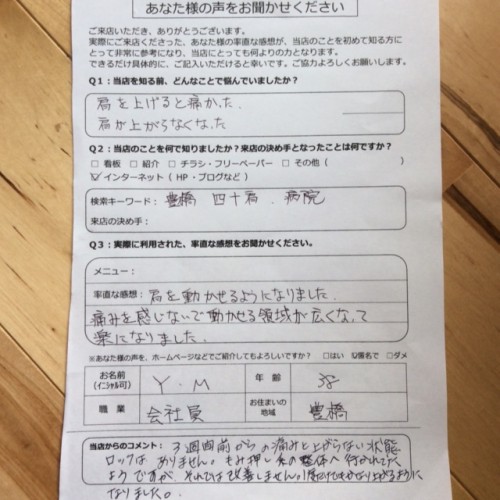 あなた様の声をお聞かせください
ご来店いただき、ありがとうございます。
実際にご来店くださった、あなた様の率直な感想が、当店のことを初めて知る方に
とって非常に参考になり、当店にとっても何よりの力となります。
できるだけ具体的に、ご記入いただけると幸いです。ご協力よろしくお願いします。
Q1：当店を知る前、どんなことで悩んでいましたか？
肩を上げると痛かった。
肩が上がらなくなった
Q2：当店のことを何で知りましたか？来店の決め手となったことは何ですか？
□ 看板 □ 紹介 □ チラシ・フリーペーパー □ その他（ ）
☑ インターネット（HP・ブログなど）
検索キーワード：豊橋 四十肩 、病院
来店の決め手：
Q3：実際に利用された、率直な感想をお聞かせください。
メニュー：
率直な感想：肩を動かせるようになりました。
痛みを感じないで動かせる領域が広くなって
楽になりました。
※あなた様の声を、ホームページなどでご紹介してもよろしいですか？ □はい ☑匿名で □ダメ
お名前（イニシャル可） Y・M 年 齢 38
職 業 会社員 お住まいの地域 豊橋
当店からのコメント：3週間前からの痛みと上がらない状態
ロックは ありません。もみ押し系の整体へ行かれてた
ようですが、それでは改善しません。
なりました。